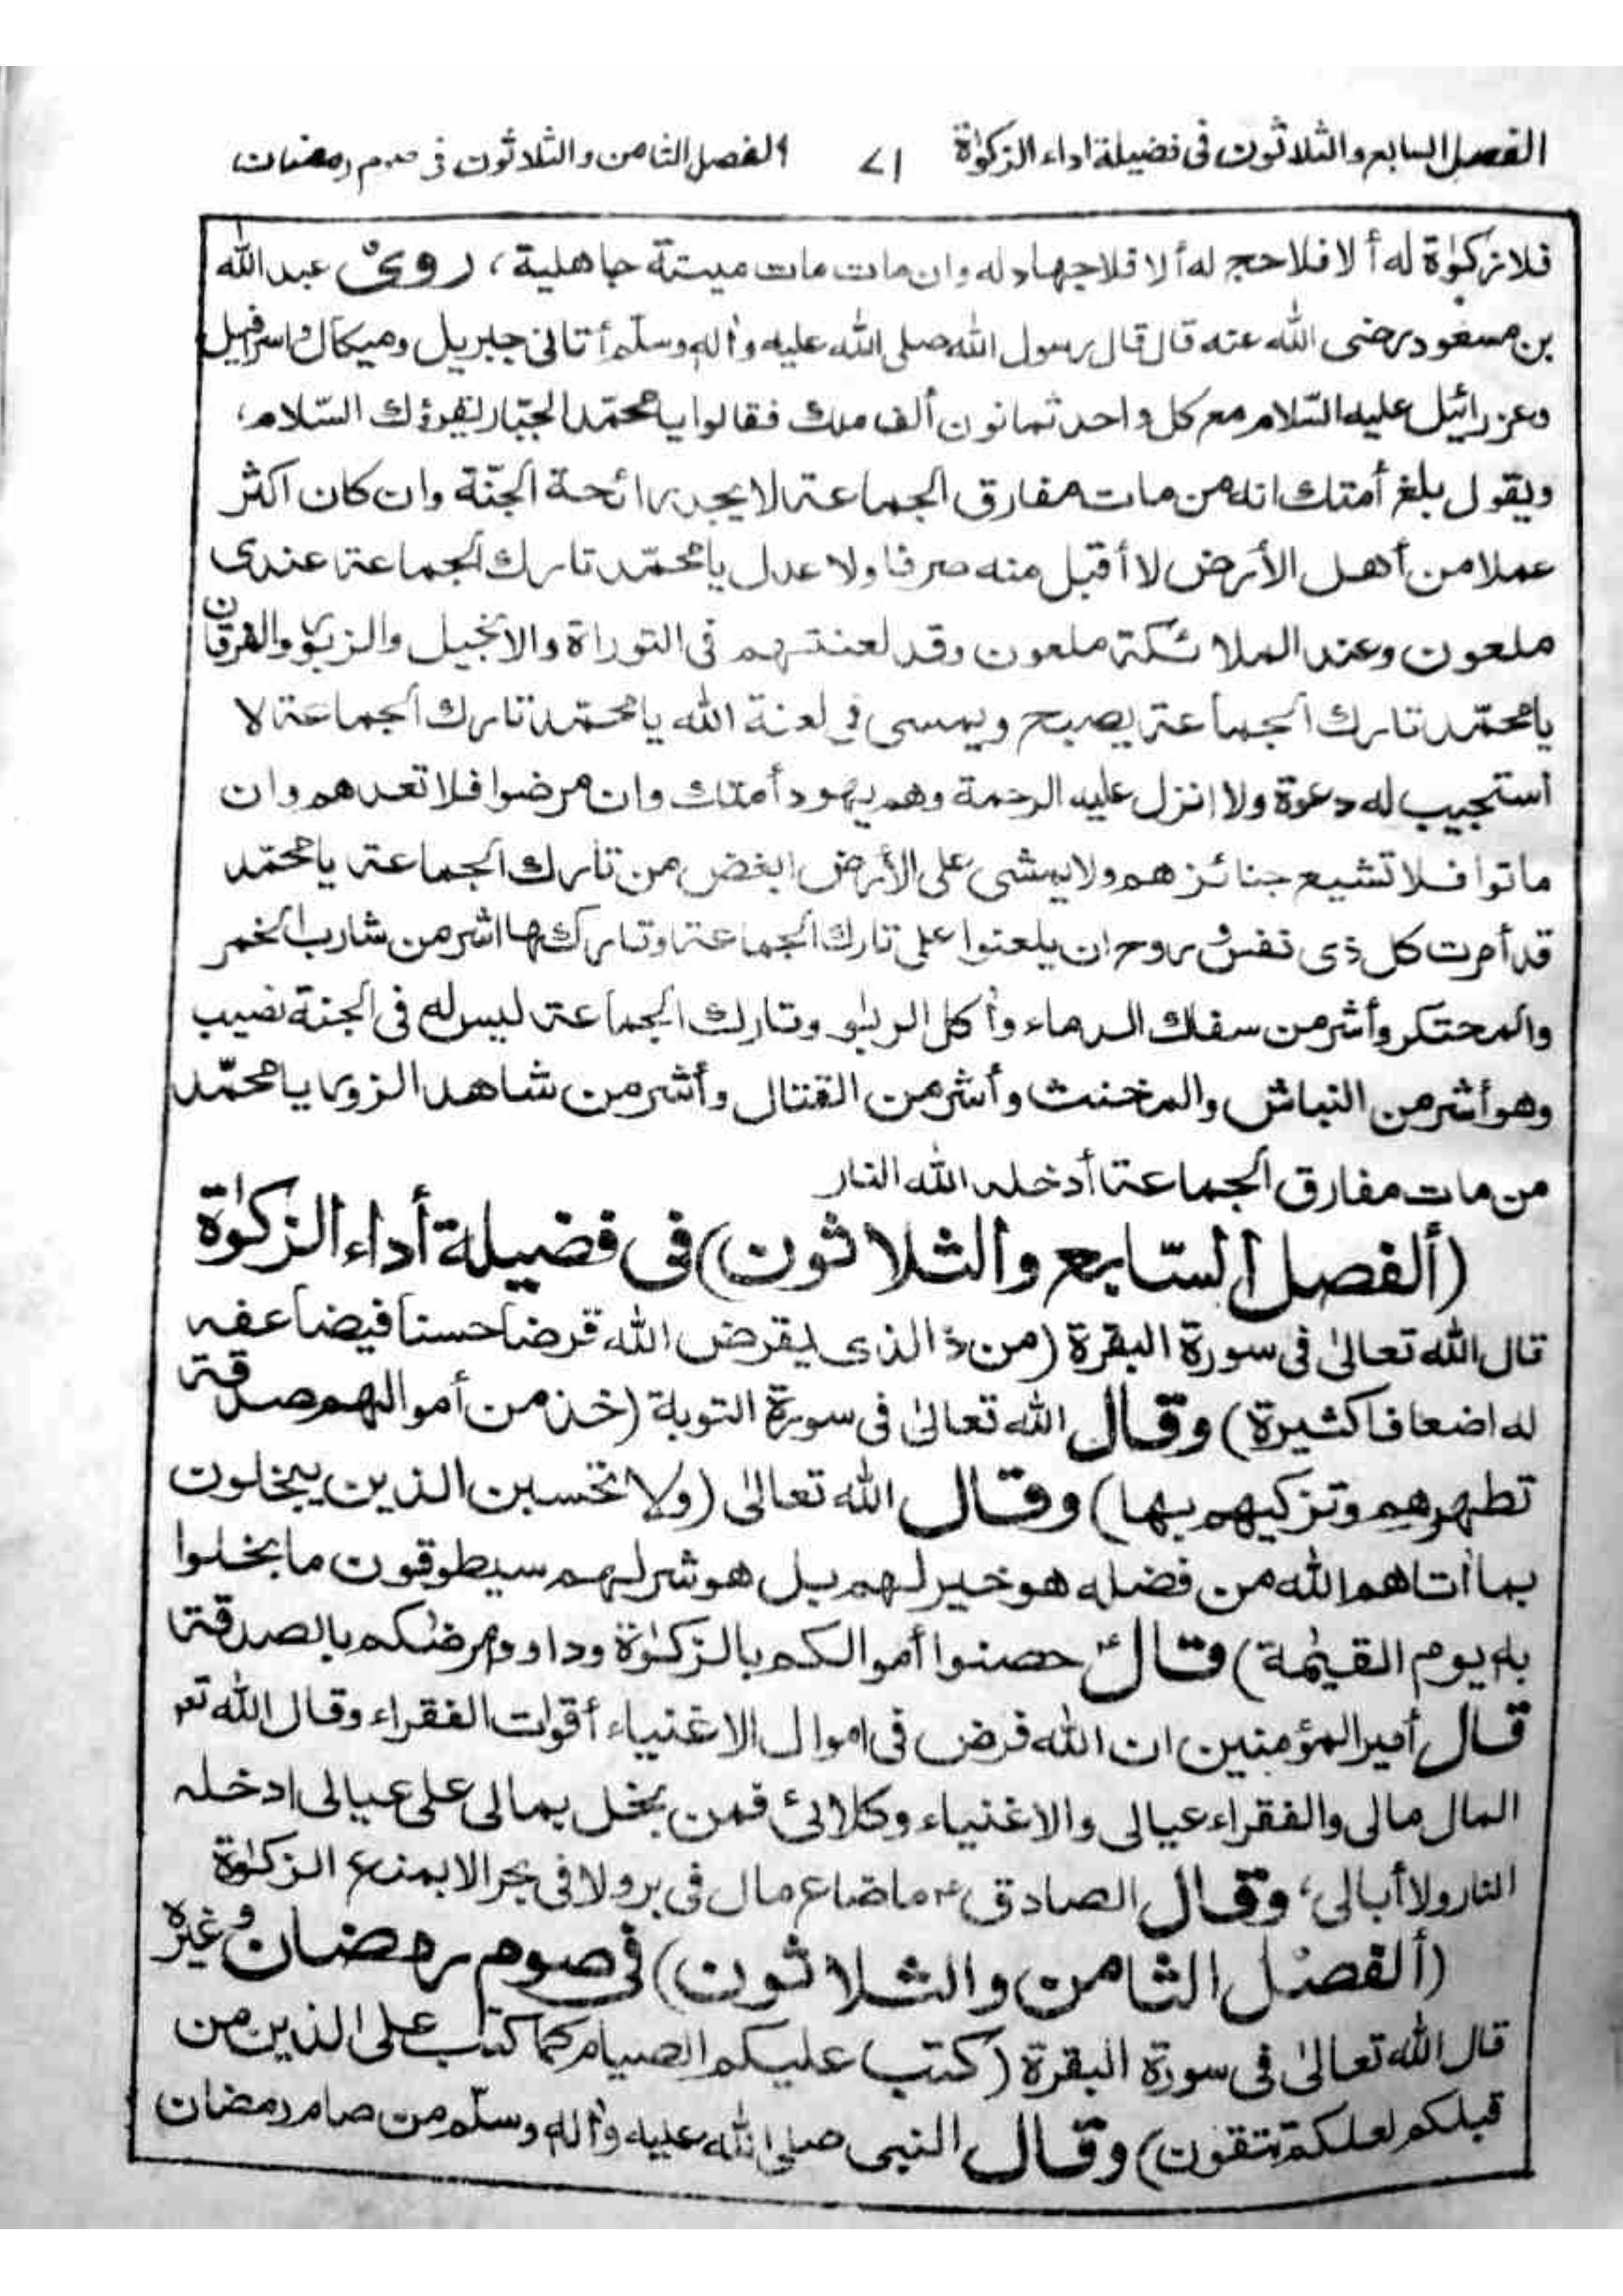 الفصل السابع والثلاثون فى فضيلة اداء الزكوٰة ٧١ الفصل الثامن والثلاثون فى صوم رمضان
فلا زكوٰة له ألا فلا حج له ألا فلا جهاد له وان مات مات ميتة جاهلية، روى عبد الله
بن مسعود رضى الله عنه قال قال رسول الله صلى الله عليه واٰله وسلّم أتانى جبريل وميكال واسرافيل
وعزرائيل عليه السّلام مع كل واحد ثمانون ألف ملك فقالوا يا محمّد الجبّار يقرؤك السّلام،
ويقول بلغ أمتك انه من مات مفارق الجماعة لا يجد رائحة الجنّة وان كان اكثر
عملا من أهل الأرض لا أقبل منه صرفا ولا عدل يا محمّد تارك الجماعة عندى
ملعون وعند الملائكة ملعون وقد لعنتهم فى التوراة والانجيل والزبور والفرقان
يا محمّد تارك الجماعة يصبح ويمسى فى لعنة الله يا محمّد تارك الجماعة لا
أستجيب له دعوة ولا انزل عليه الرحمة وهم يهود أمتك وان مرضوا فلا تعدهم وان
ماتوا فلا تشيع جنائزهم ولا يمشى على الأرض ابغض من تارك الجماعة يا محمّد
قد أمرت كل ذى نفس وروح ان يلعنوا على تارك الجماعة وتاركها اشر من شارب الخمر
والمحتكر وأشر من سفاك الدماء وأكل الربٰو وتارك الجماعة ليس له فى الجنة نصيب
وهو أشر من النباش والمخنث وأشر من القتال وأشر من شاهد الزور يا محمّد
من مات مفارق الجماعة أدخله الله النار
(ألفصل السّابع والثلاثون) فى فضيلة أداء الزكوٰة
قال الله تعالىٰ فى سورة البقرة (من ذا الذى يقرض الله قرضا حسنا فيضاعفه
له اضعافا كثيرة) وقال الله تعالىٰ فى سورة التوبة (خذ من أموالهم صدقة
تطهرهم وتزكيهم بها) وقال الله تعالىٰ (ولا تحسبن الذين يبخلون
بما أتاهم الله من فضله هو خير لهم بل هو شر لهم سيطوقون ما بخلوا
به يوم القيٰمة) قال ص حصنوا أموالكم بالزكوٰة وداووا مرضٰكم بالصدقة
قال أمير المؤمنين ان الله فرض فى اموال الاغنياء أقوات الفقراء وقال الله تع
المال مالى والفقراء عيالى والاغنياء وكلائى فمن بخل بمالى على عيالى ادخله
النار ولا أبالى، وقال الصادق ع ما ضاع مال فى بر ولا فى بحر الا بمنع الزكوٰة
(ألفصل الثامن والثلاثون) فى صوم رمضان وغيره
قال الله تعالىٰ فى سورة البقرة (كتب عليكم الصيام كما كتب على الذين من
قبلكم لعلكم تتقون) وقال النبى صلى الله عليه واٰله وسلّم من صام رمضان